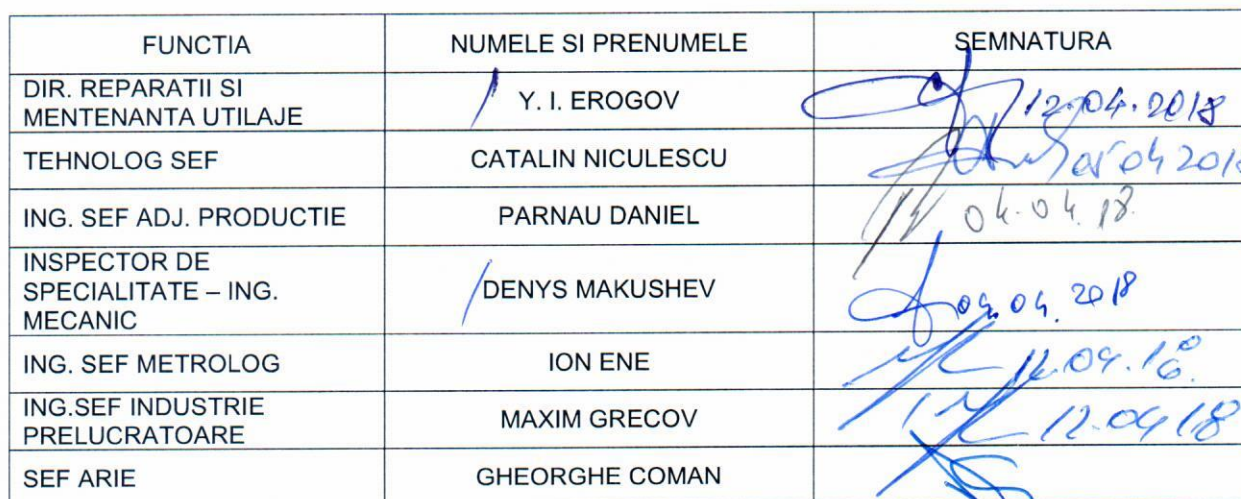 FUNCTIA NUMELE SI PRENUMELE SEMNATURA
DIR. REPARATII SI
MENTENANTA UTILAJE
Y. I. EROGOV 12.04.2018
TEHNOLOG SEF CATALIN NICULESCU 05 04 2018
ING. SEF ADJ. PRODUCTIE PARNAU DANIEL 04.04.18.
INSPECTOR DE
SPECIALITATE – ING.
MECANIC
DENYS MAKUSHEV 04.04.2018
ING. SEF METROLOG ION ENE
ING.SEF INDUSTRIE
PRELUCRATOARE
MAXIM GRECOV 12.04 18
SEF ARIE GHEORGHE COMAN